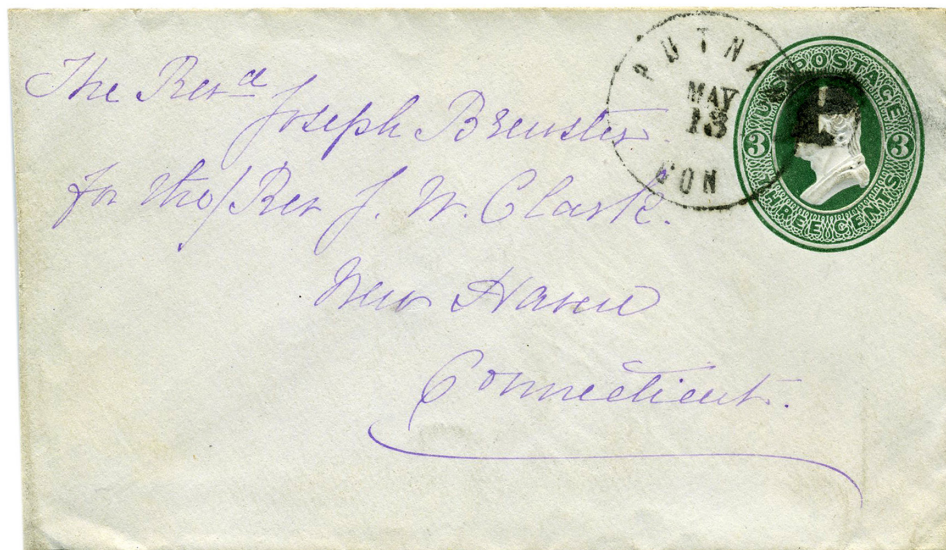 The Revd
Joseph Brewster
for the/Rev J. W. Clark.
New Haven
Connecticut.
PUTNAM
MAY
13
CON
U.S. POSTAGE
3 3
THREE CENTS